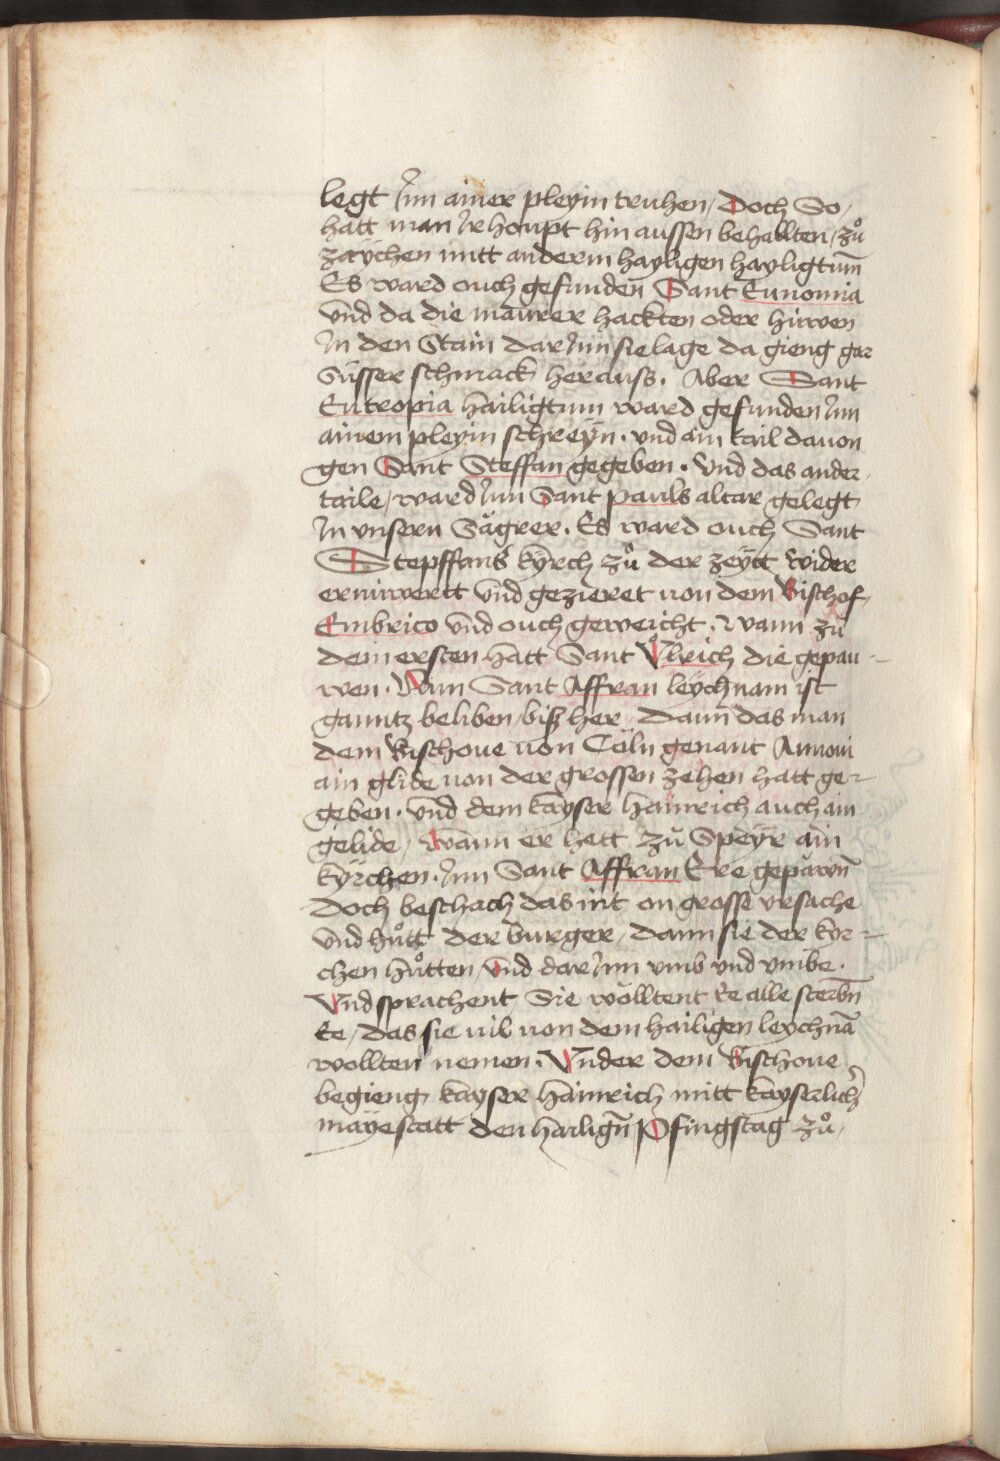 legt Jnn ainer pleyin truhen / Doch So /
hatt man Jr houpt hin aussen behallten / zů
zaÿchen mitt anderm hayligen hayligtum̄
Es ward ouch gefunden Sant Eunomia
vnd da die maurer hackten oder hiwen
Jn den Stain dar Jnn sie lage da gieng gar
Süsser schmack herauss. Aber Sant
Eutropia hailigtum ward gefunden Jnn
ainem pleyin schreÿn. vnd ain tail dauon
gen Sant Steffan gegeben. Vnd das ander
taile / ward Jnn Sant pauls altar gelegt
Jn vnsern Sägrer. Es ward ouch Sant
Stepffans kÿrch zů der zeÿtt wider
erniwertt vnd gezieret von dem Bischof
Embrico vnd ouch geweicht. Wann zů
dem ersten hatt Sant Vlrich die gepau -
wen. Wann Sant Affran leÿchnam ist
ganntz beliben / bisz her / Dann das man
dem Bischoue von Cöln genant Annoni
ain glide von der grossen zehen hatt ge-
geben. vnd dem kaÿser hainrich auch ain
gelide / Wann er hett zů Speÿr ain
kÿrchen. Jnn Sant Affran Ere gepawn̄
Doch beschach das nit on grosse vrsache
vnd hůtt der burger / dann sie der kyr -
chen hůtten / vnd dar Jnn vmb vnd vmbe.
Vnd sprachent Sie wölltent Ee alle sterbn̄
Ee / das sie vil von dem hailigen leÿchnā
wollten nemen. Vnder dem Bischoue
begieng kaÿser hainrich mitt kayserlicher
maÿestatt den hailign̄ Pfingstag zů /